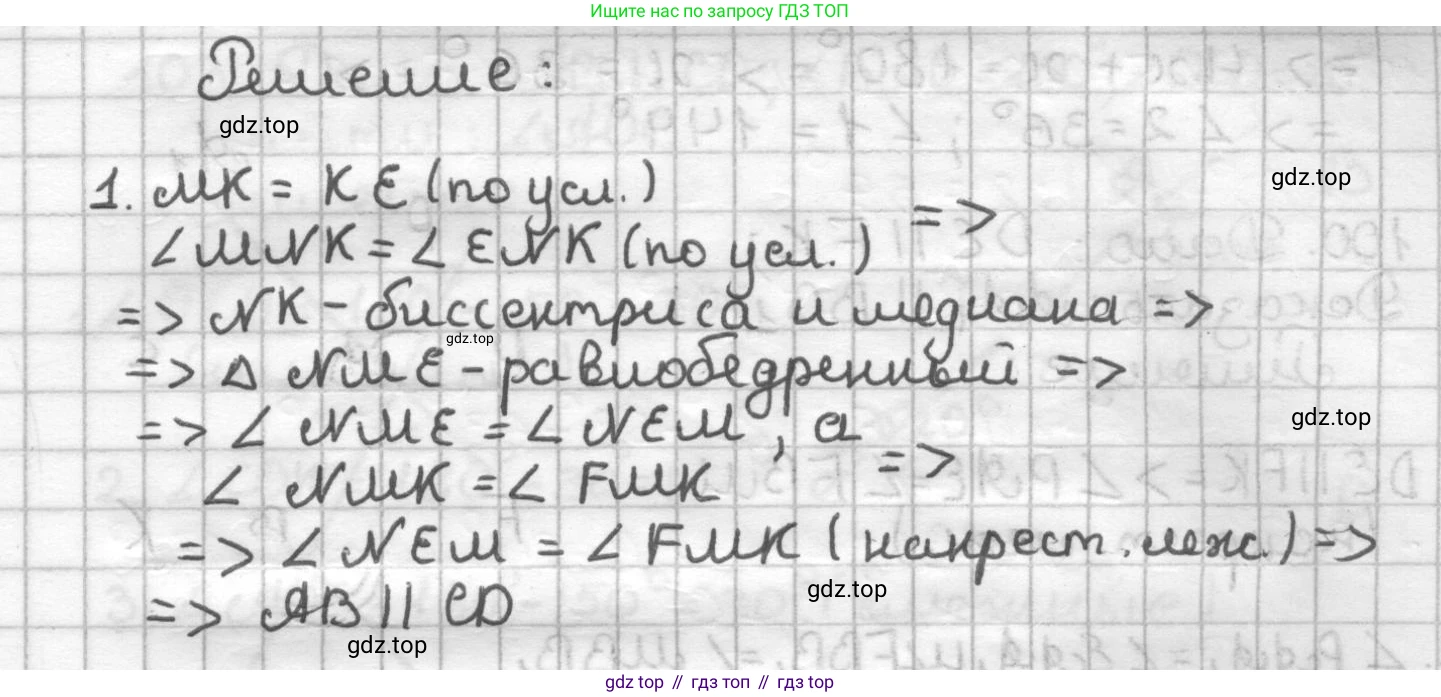 Ищите нас по запросу ГДЗ ТОП
Решение:
gdz.top
1. MK = KE (по усл.)
gdz.top
=>
∠MNK = ∠ENK (по усл.)
=> NK - биссектриса и медиана =>
gdz.top
=> △ NME - равнобедренный =>
=> ∠ NME = ∠NEM, а
gdz.top
=>
∠ NMK = ∠ FMK
=> ∠NEM = ∠FMK (накрест. леж.) =>
gdz.top
=> AB || CD
gdz.top
gdz top // гдз топ // гдз top